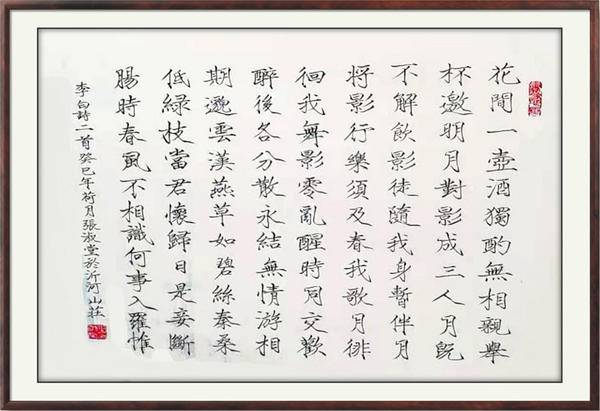 花間一壺酒獨酌無相親舉
杯邀明月對影成三人月既
不解飲影徒隨我身暫伴月
將影行樂須及春我歌月徘
徊我舞影零亂醒時同交歡
醉後各分散永結無情游相
期邈雲漢燕草如碧絲秦桑
低綠枝當君懷歸日是妾斷
腸時春風不相識何事入羅帷
李白詩二首癸巳年荷月張淑堂於沂河山莊